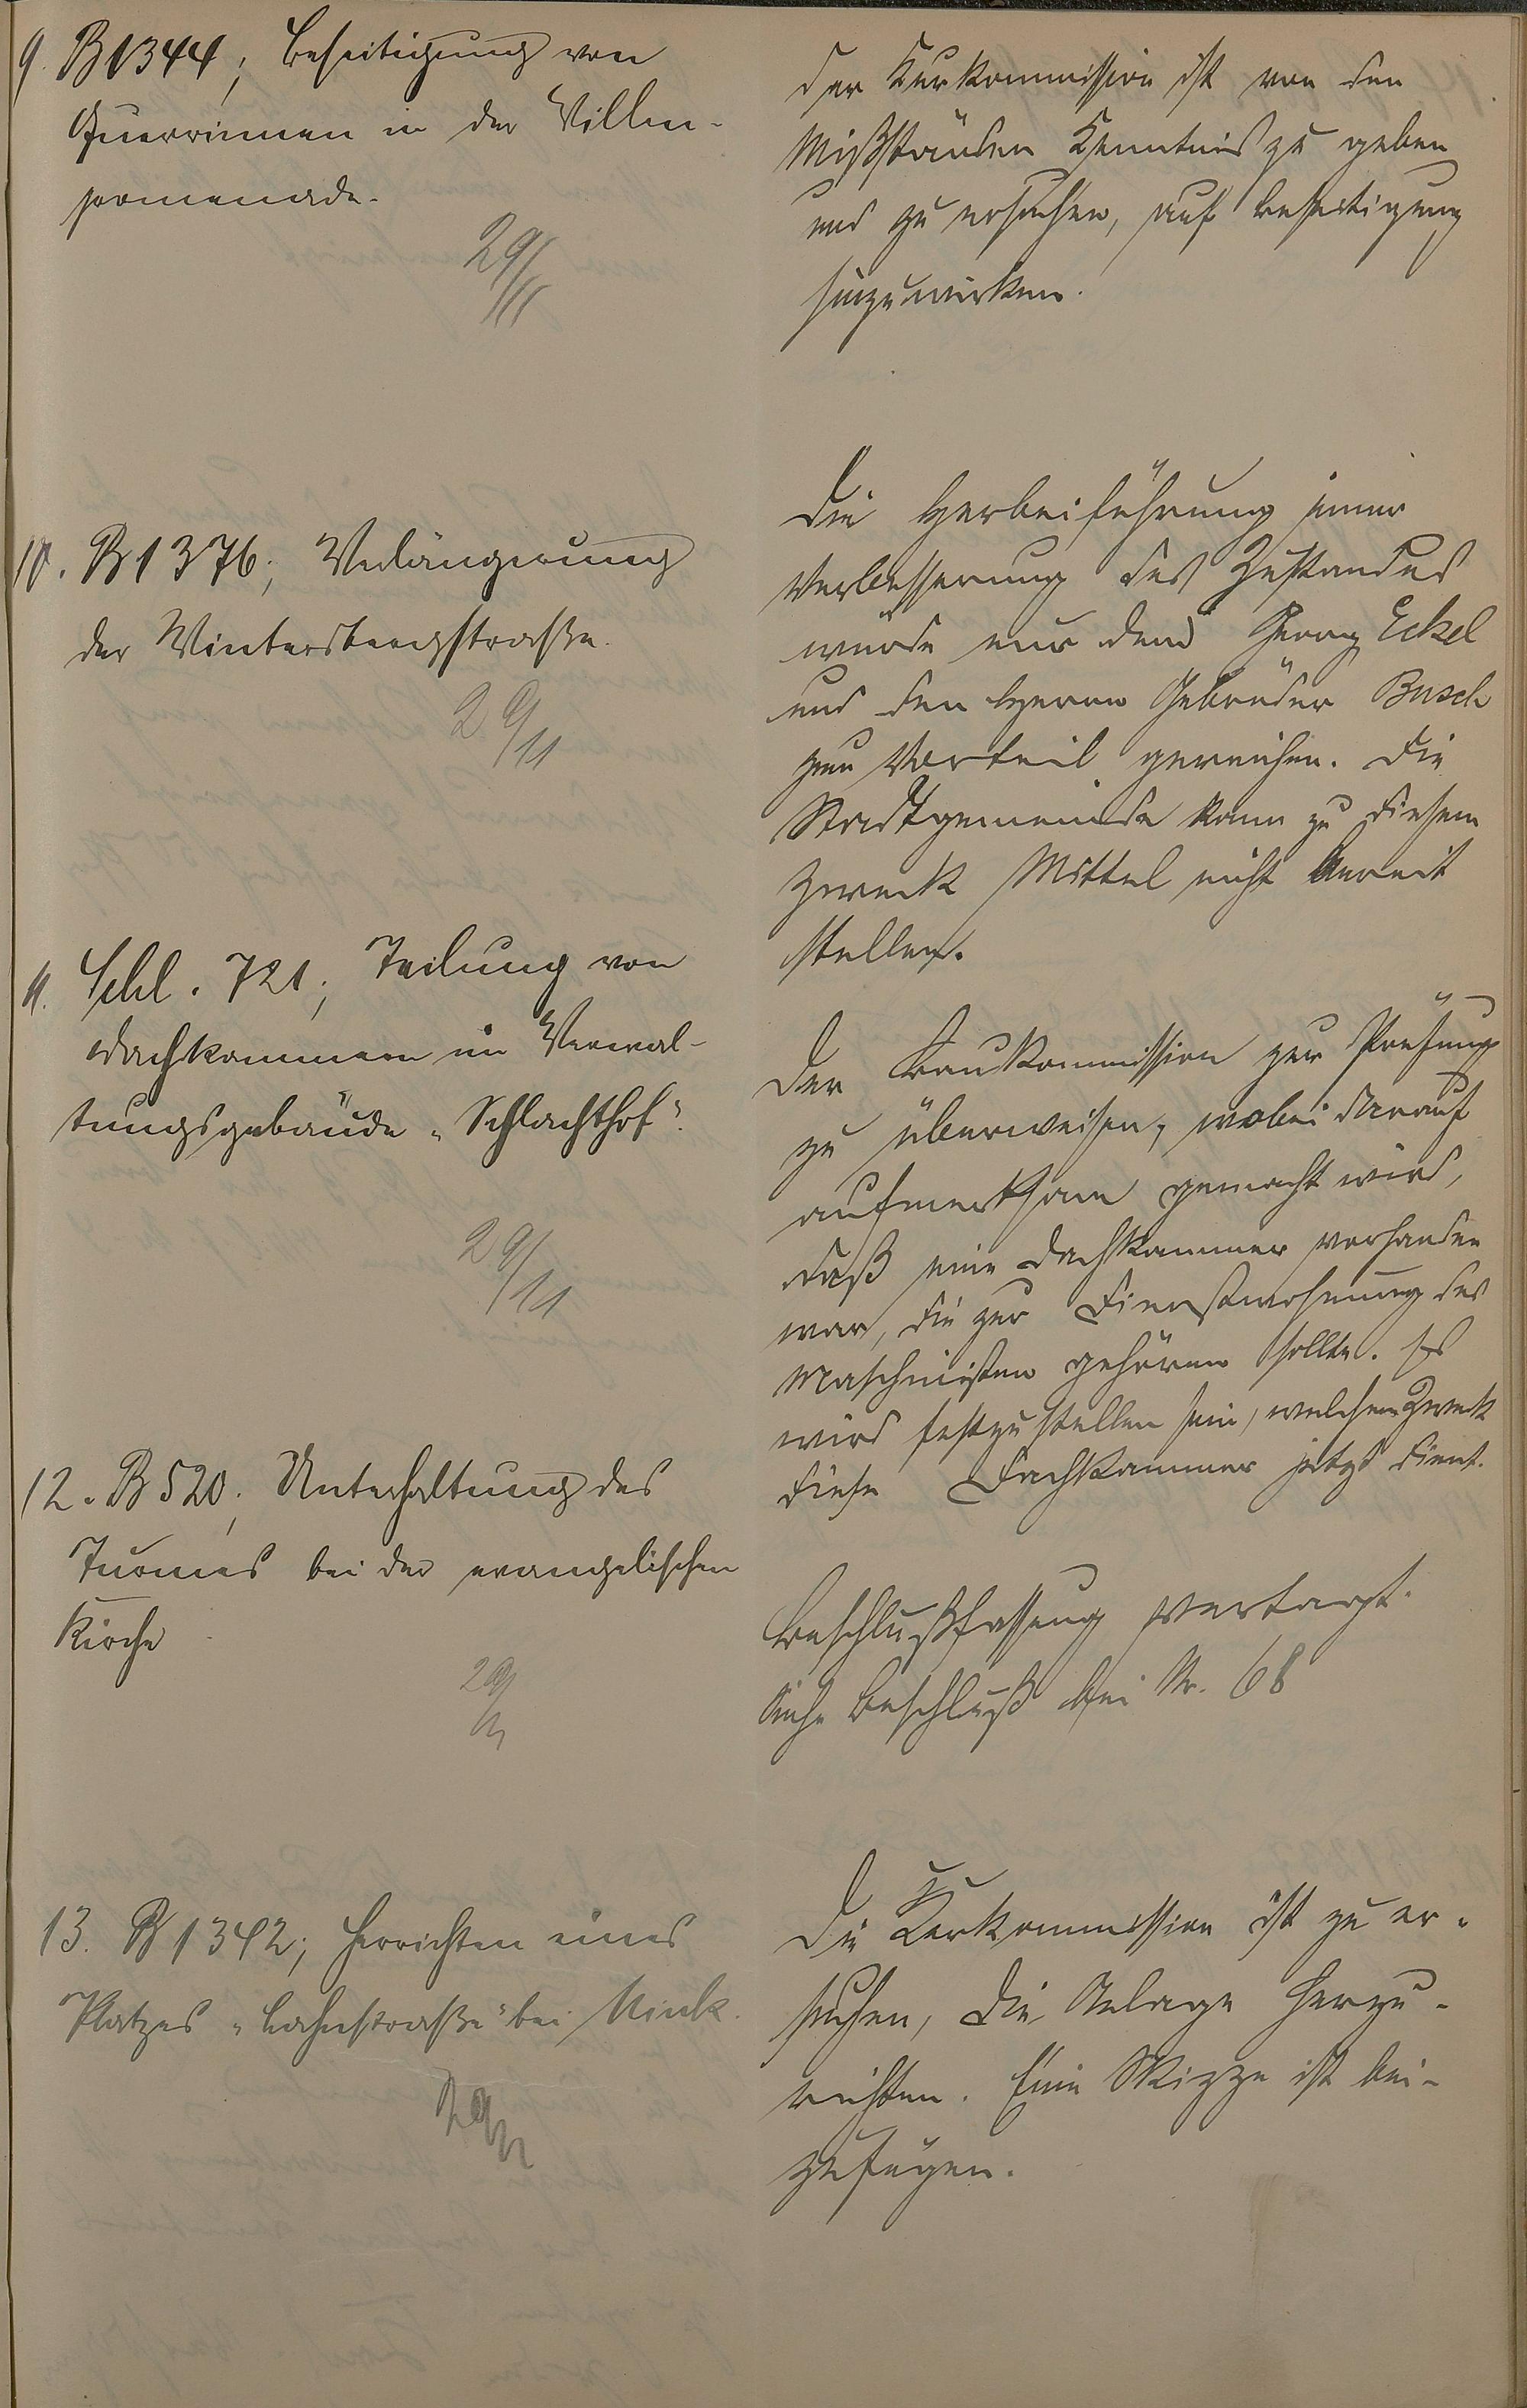 9. B 1344; Beseitigung von
Querrinnen in der Villen-
promenade.
29/11
Der Kurkommission ist von den
Mißständen Kenntnis zu geben
und zu ersuchen, auf Beseitigung
hinzuwirken.
10. B 1376; Verlängerung
der Wintersbergstraße.
29/11
Die Herbeiführung einer
Verbesserung des Zustandes
würde nur dem Georg Eckel
und den Herren Gebrüder Busch
zum Vorteil gereichen. Die
Stadtgemeinde kann zu diesem
Zweck Mittel nicht bereit
stellen.
11. Schl. 721; Teilung von
Dachkammern im Verwal-
tungsgebäude "Schlachthof".
29/11
Der Baukommission zur Prüfung
zu überweisen, wobei darauf
aufmerksam gemacht wird,
daß eine Dachkammer vorhanden
war, die zur Dienstwohnung des
Maschinisten gehören sollte. Es
wird festzustellen sein, welchem Zweck
diese Dachkammer jetzt dient.
12. B 520; Unterhaltung des
Turmes bei der evangelischen
Kirche
29/11
Beschlußfassung vertagt.
Siehe Beschluß bei Nr. 68
13. B 1342; Herrichten eines
Platzes "Lahnstraße" bei Mink.
29/11
Die Kurkommission ist zu er-
suchen, die Anlage herzu-
richten. Eine Skizze ist bei-
zufügen.